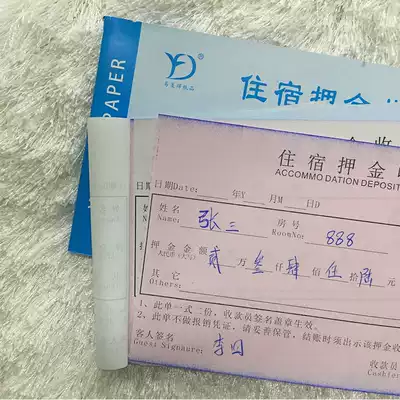 PAPER
住宿押金
住宿押金
ACCOMMO DATION DEPOSIT
日期Date: 年Y 月M 日D
姓名 Name: 张三 房号 RoomNo: 888
押金金额 贰万叁仟肆佰伍拾陆元
其它
Others:
1、此单一式二份，收款员签名盖章生效。
2、此单不做报销凭证，请妥善保管，结账时须出示该押金收
客人签名 收款员
Guest Signaure: Cashier